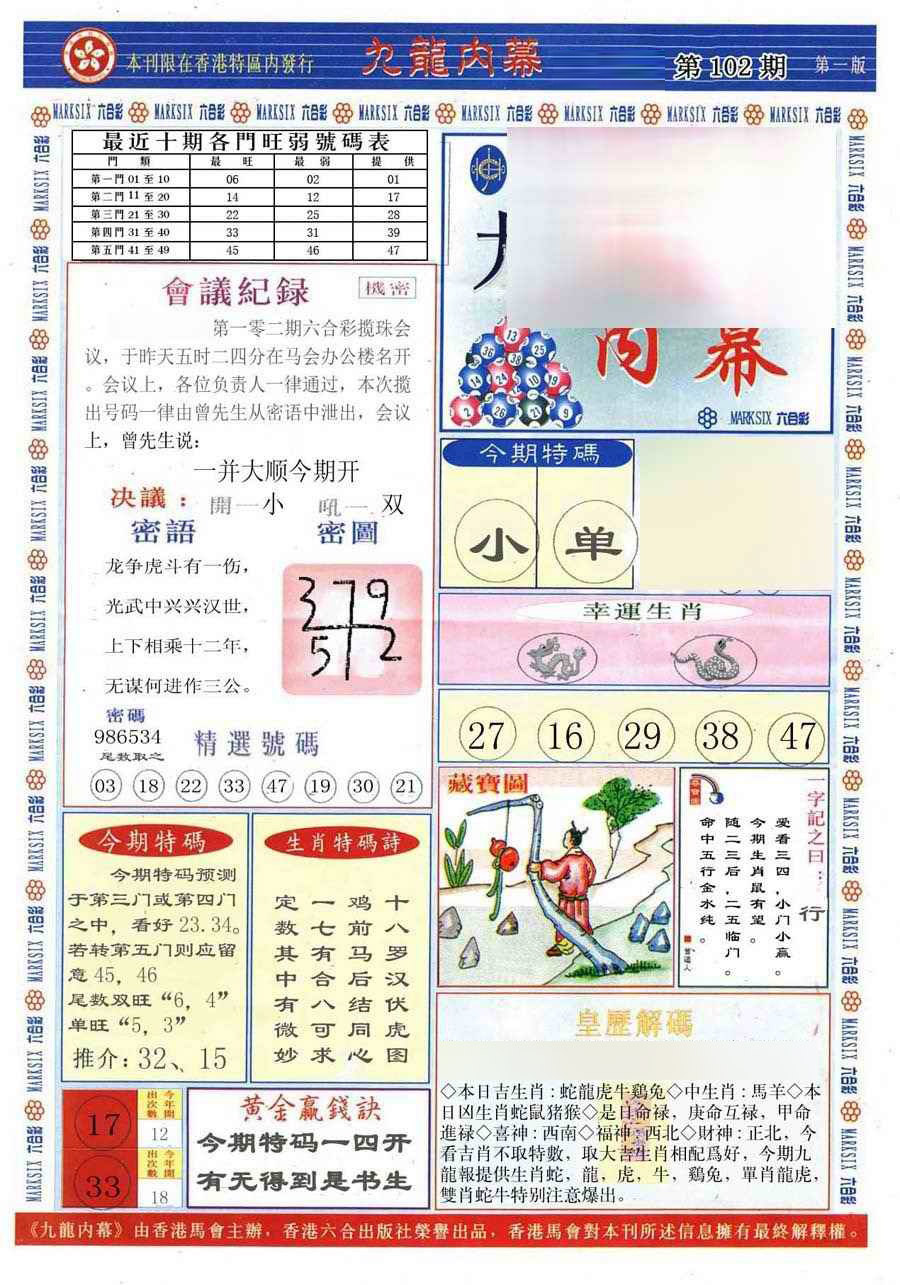 本刊限在香港特區内發行
九龍内幕
第102期
第一版
MARKSIX 六合彩
最近十期各門旺弱號碼表
門類 最旺 最弱 提供
第一門 01 至 10 06 02 01
第二門 11 至 20 14 12 17
第三門 21 至 30 22 25 28
第四門 31 至 40 33 31 39
第五門 41 至 49 45 46 47
會議紀録
機密
第一零二期六合彩揽珠会
议，于昨天五时二四分在马会办公楼名开
。会议上，各位负责人一律通过，本次揽
出号码一律由曾先生从密语中泄出，会议
上，曾先生说：
一并大顺今期开
决議：開一小 吼一 双
密語
密圖
龙争虎斗有一伤，
光武中兴兴汉世，
上下相乘十二年，
无谋何进作三公。
379
5 2
密碼
986534
尾数取之
精選號碼
03 18 22 33 47 19 30 21
内幕
13
36 38 25
14 24 10 19
2 26 21 9
MARKSIX 六合彩
今期特碼
小 单
幸運生肖
27 16 29 38 47
藏寶圖
一字記之曰：
行
爱看三四，小门小赢。
今期生肖鼠有望。
随二三后，二五临门。
命中五行金水纯。
今期特碼
今期特码预测
于第三门或第四门
之中，看好 23.34。
若转第五门则应留
意 45，46
尾数双旺“6，4”
单旺“5，3”
推介：32、15
生肖特碼詩
十八罗汉伏虎图
鸡前马后结同心
一七有合八可求
定数其中有微妙
17
今年開出次數
12
33
今年開出次數
18
黄金赢錢訣
今期特码一四开
有无得到是书生
皇歷解碼
◇本日吉生肖：蛇龍虎牛鷄兔◇中生肖：馬羊◇本
日凶生肖蛇鼠猪猴◇是日命禄，庚命互禄，甲命
進禄◇喜神：西南◇福神：西北◇財神：正北，今
看吉肖不取特數，取大吉生肖相配爲好，今期九
龍報提供生肖蛇，龍，虎，牛，鷄兔，單肖龍虎，
雙肖蛇牛特别注意爆出。
《九龍内幕》由香港馬會主辦，香港六合出版社榮譽出品，香港馬會對本刊所述信息擁有最終解釋權。